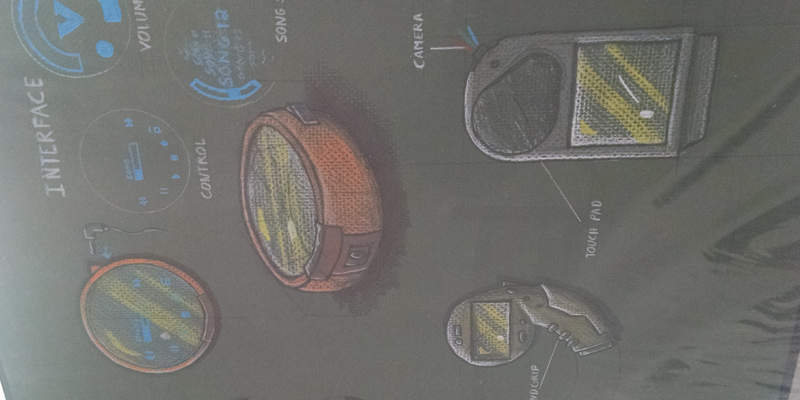 INTERFACE
VOLUM
SONG S
SONG 12
CONTROL
CAMERA
TOUCH PAD
NDGRIP